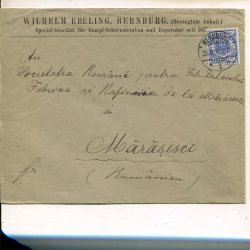 WILHELM EBELING, BERNBURG. (Herzogtum Anhalt.)
Special-Geschäft für Dampf-Schornsteinbau und Reparatur seit
An
Societatea Română pentru
Fabrica și Rafinăria de la Mărășesci
Mărășesci
(Rumänien)